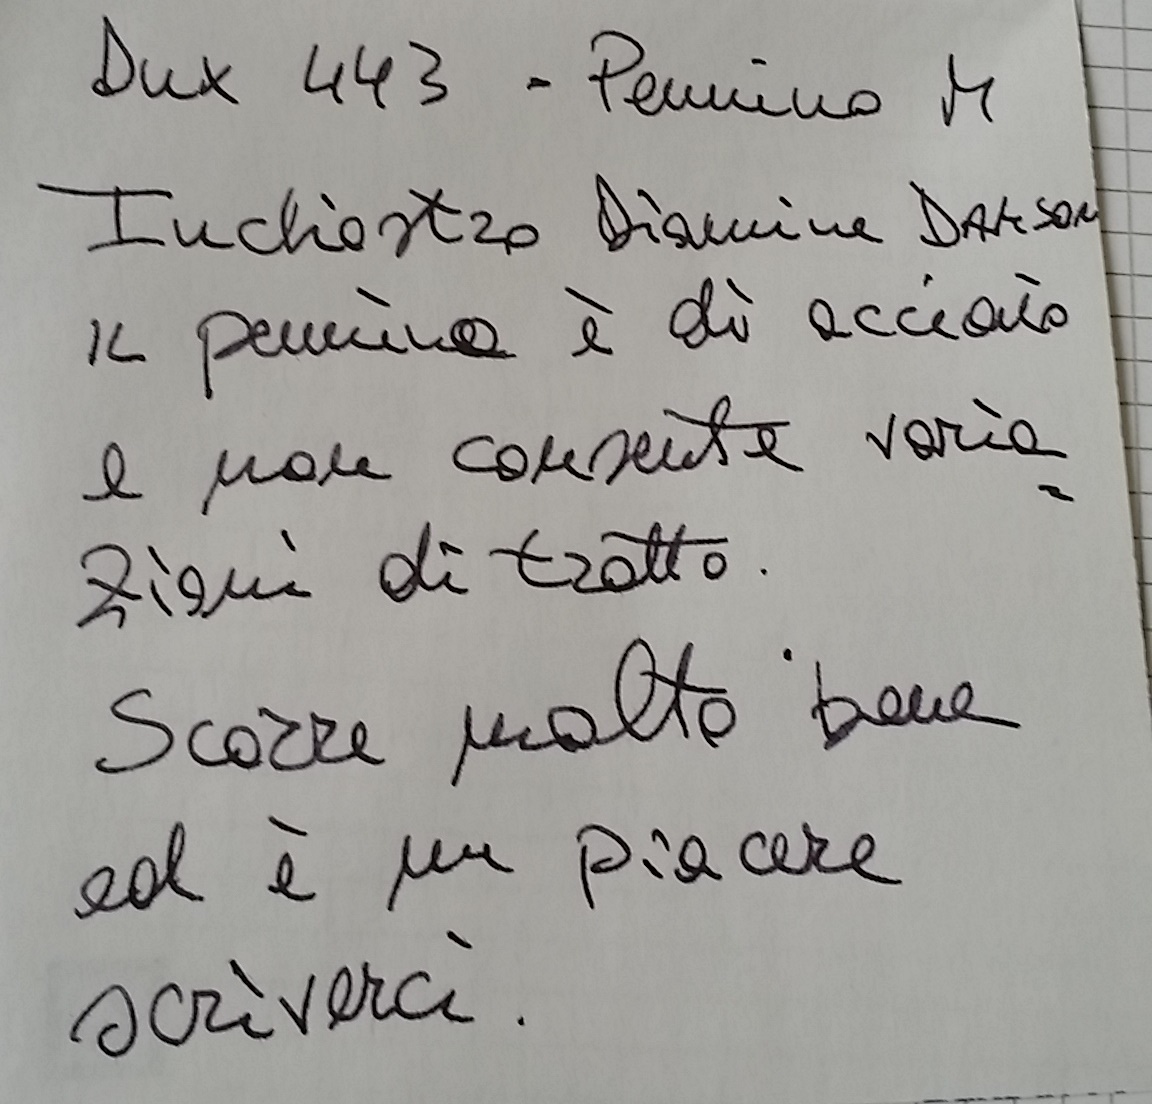 Dux 443 - Pennino M
Inchiostro Diamine DAMSON
IL pennino è di acciaio
e non consente varia=
zioni di tratto.
Scorre molto bene
ed è un piacere
scriverci.